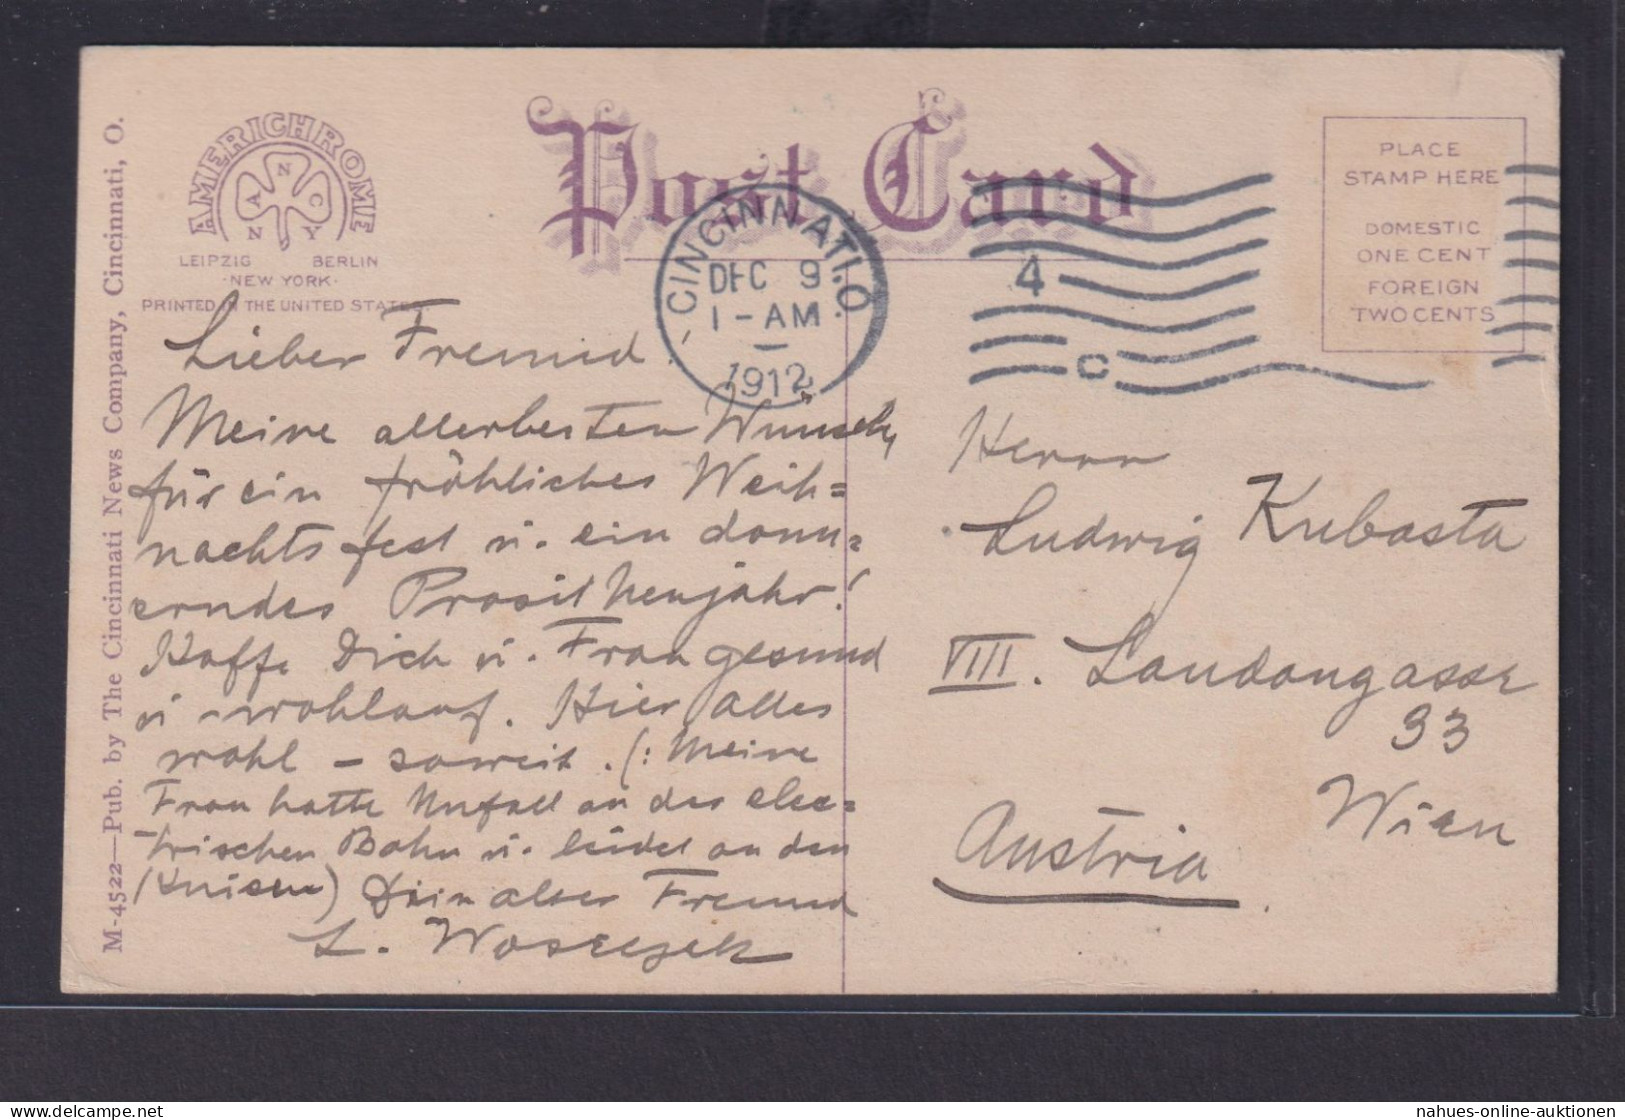 Post Card
AMERICHROME
ANNCY
LEIPZIG BERLIN
·NEW YORK·
PRINTED IN THE UNITED STATES
M-4522—Pub. by The Cincinnati News Company, Cincinnati, O.
CINCINNATI, O.
DEC 9
1-AM
1912
4
C
PLACE
STAMP HERE
DOMESTIC
ONE CENT
FOREIGN
TWO CENTS
Lieber Freund!
Meine allerbesten Wünsche
für ein fröhliches Weih=
nachtsfest u. ein donn=
erndes Prosit Neujahr!
Hoffe Dich u. Frau gesund
u wohlauf. Hier Alles
wohl – soweit. (: Meine
Frau hatte Unfall an der elec=
trischen Bahn u. leidet an den
(Knieen) Dein alter Freund
L.
Herrn
Ludwig Kubasta
VIII. Laudongasse
33
Wien
Austria
nahues-online-auktionen